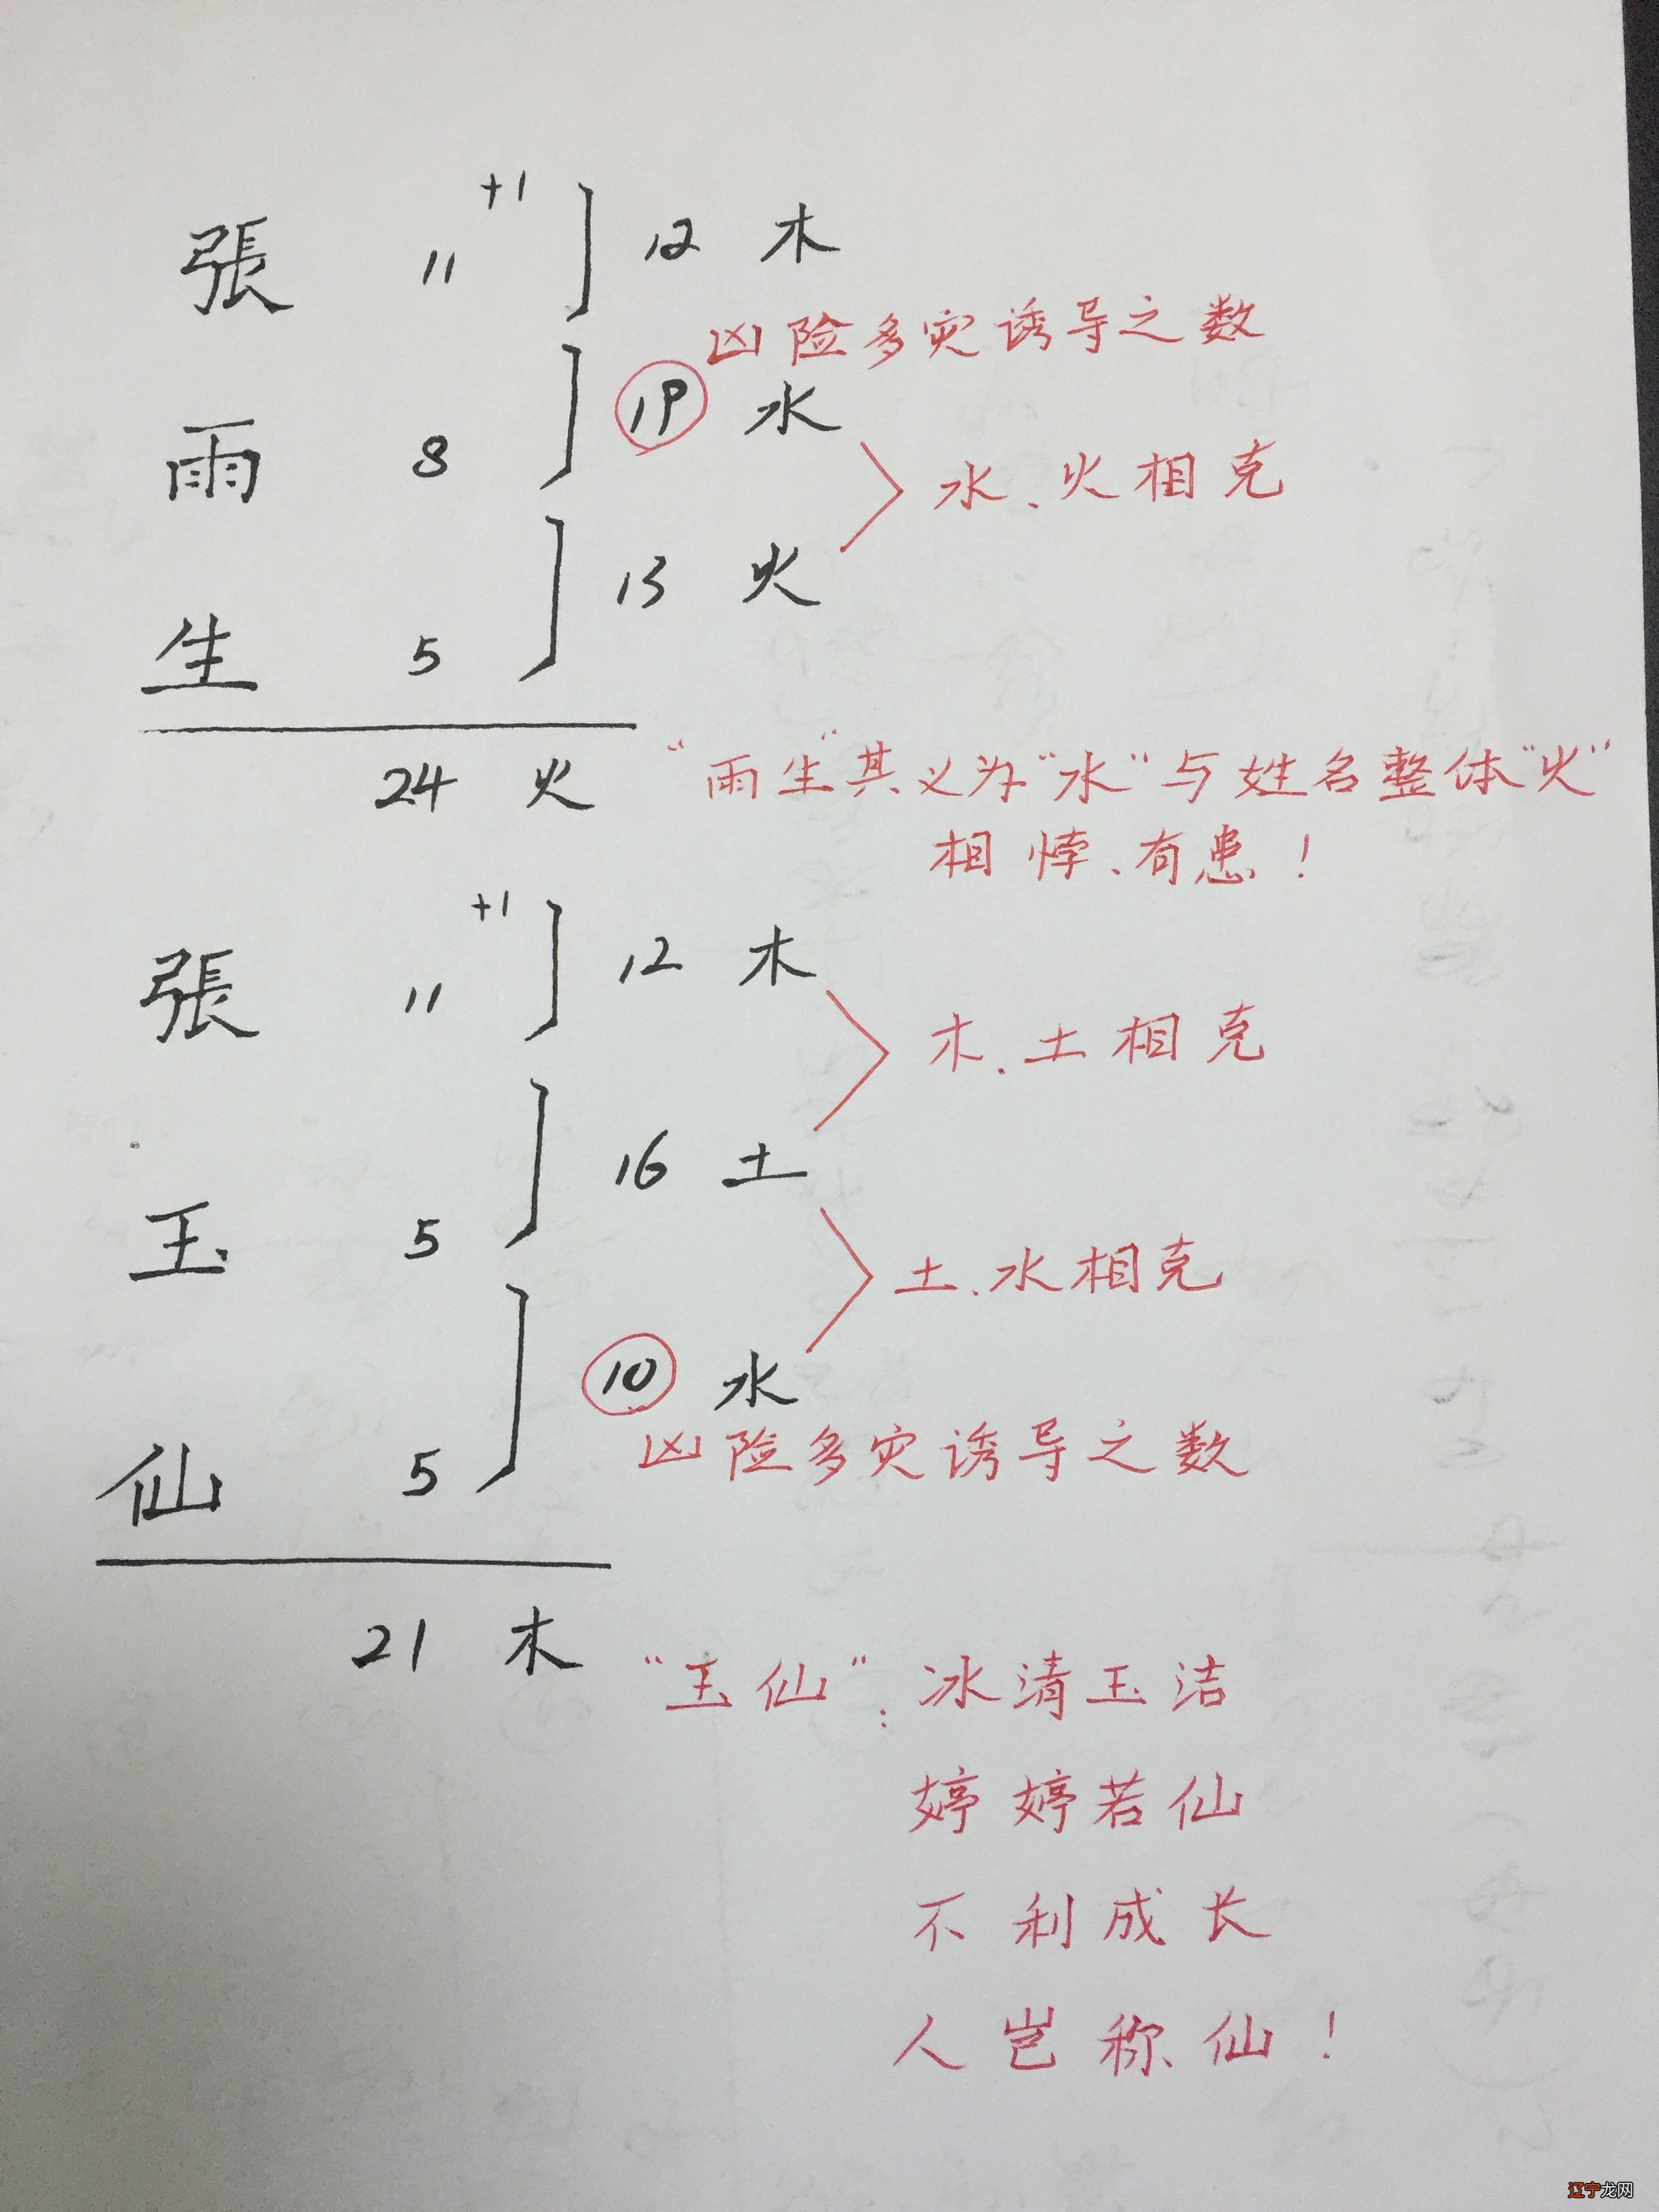 +1
張 11 12 木
凶险多灾诱导之数
雨 8 19 水
水、火相克
生 5 13 火
24 火 “雨生”其义为“水”与姓名整体“火”
相悖、有患！
+1
張 11 12 木
木、土相克
玉 5 16 土
土、水相克
仙 5 10 水
凶险多灾诱导之数
21 木 “玉仙”：冰清玉洁
婷婷若仙
不利成长
人岂称仙！
辽宁龙网